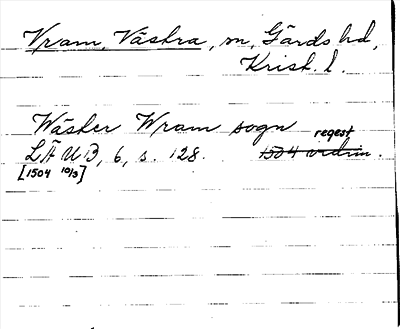 Vram, Västra, sn, Gärds hd,
Krist. l.
Wäster Wram sogn
regest.
LÄUB, 6, s. 128. 1504 avskr.
[1504 10/3]